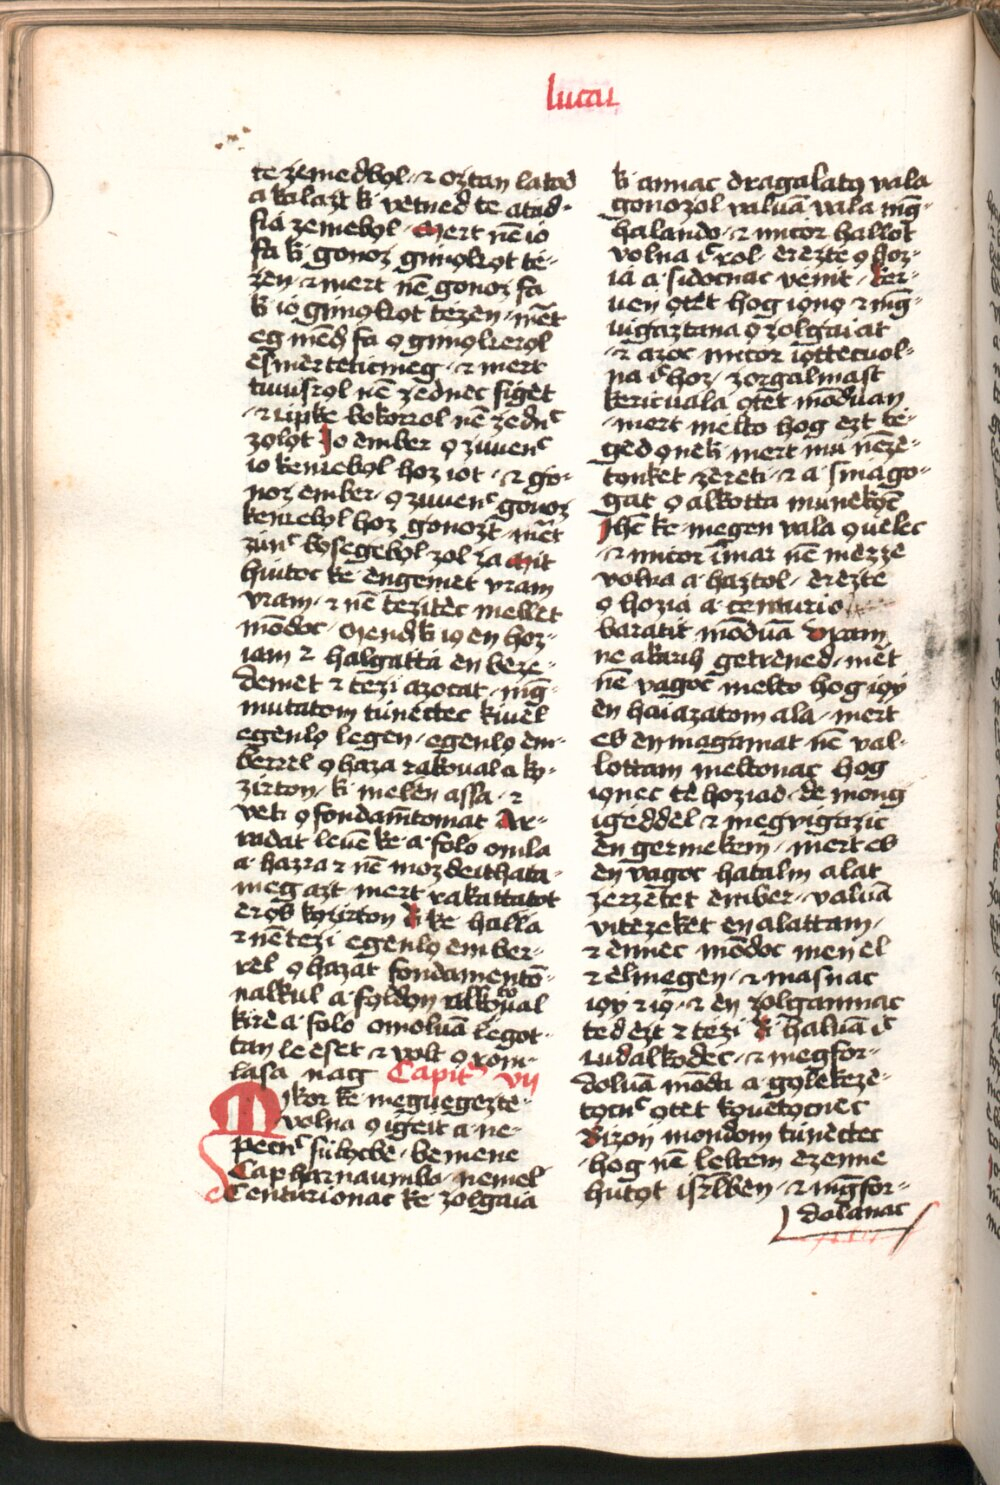 lucaci
te zemedbo̗l · ⁊ oztan latod
a kalazt ki vetned te atad-
fia zemebo̗l · Mert nē io
fa ki gonoz gimo̗lcżot te-
zen · ⁊ mert nē gonoz fa
ki io gimo̗lczot tezen · mēt
eg mēd fa o̗ gimo̗lczerol
esmerteticmeg · ⁊ mert
tuuisrol nē zednec figet
· ⁊ cipke bokorrol nē zednc
zo̗lo̗t Io ember o̗ zuuenc
io kencebo̗l hoz iot · ⁊ go-
noz ember · o̗ zuuenc gonoz
kencebo̗l hoz gonozt · mēt
zunc bo̗segebo̗l zol za Mit
hiutoc ke engemet vram
vram · ⁊ nē tezitec mellet
mōdoc · Mendki io̗ en hoz-
iam ⁊ halgatta en beze-
demet ⁊ tezi azocat · mḡ
mutatom tunectec kiuel
egenlo̗ legen · egenlo̗ em-
berrel o̗ haza rakoual a ko̗-
zirton · ki melen assa · ⁊
veti o̗ fondamt̄omat Ar-
uadat leuē ke · a folo omla
a hazra ⁊ nē mozdeithata-
meg azt · mert rakattatot
ero̗s ko̗zirton ki ke halla
⁊ nē tezi egenlo̗ ember-
rel o̗ hazat fondamentō-
nalkul a foldon rakoual
kire a folo omoluā legot-
tan le eset · ⁊ volt o̗ rom-
lasa nag Capitm vij
Mikor ke meguegezte-
volna o̗ igeit a ne-
pecnc fulo̗cbe · bemene
Capharnaumba · nemel
Centurionac ke zolgaia
ki annac dragalatos vala
gonozol valuā vala mḡ
halando · ⁊ micor hallot
volna ic̄rol · erezte o̗ hoz-
ia a sidocnac venit · ker-
uen o̗tet hog io̗no̗ · ⁊ mḡ
uigaztana o̗ zolgaiat
· ⁊ azoc micor io̗ttecuol-
na ic̄hoz · zorgalmast
kericuala o̗tet mōduan
· mert melto hog ezt te-
ged o̗neki · mert mu nēze-
tonket zereti · ⁊ a sinago-
gat o̗ alkotta munekonc
Ihc̄ ke · megen vala o̗uelec
· ⁊ micor īmar nē mezze
volna a haztol · erezte
o̗ hozia a centurio
baratit mōduā Vram
ne akarij getrened · mēt
nē vagoc melto hog io̗y
en haiazatom ala · mert
es en magamat nē val-
lottam meltonac hog
io̗nec te hoziad · de mong
igeddel ⁊ megvigazic
en germekem · mert es
en vagoc hatalm alat
zerzetet ember · valuā
vitezeket en alattam ·
⁊ ennec mōdoc menel
⁊ elmegen · ⁊ masnac
io̗y ⁊ io̗ · ⁊ en zolgamnac
ted ezt ⁊ tezi ki haluā ic̄
cudalkodec · ⁊ megfor-
doluā mōda a go̗lekeze-
tocnc o̗tet ko̗ueto̗cnec
Bizon mondom tunectec
· hog nē leltem ezenne
huto̗t isrl̄ben · ⁊ mḡfor-
dolanac